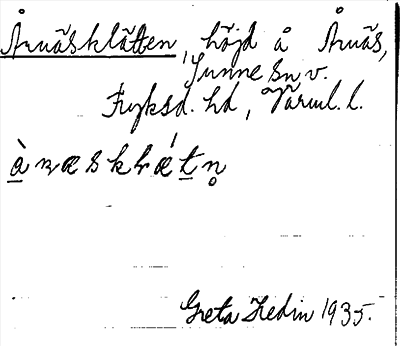 Årnäsklätten, höjd å Årnäs,
Sunne sn v.
Fryksd. hd, Värml. l.
Greta Hedin 1935.